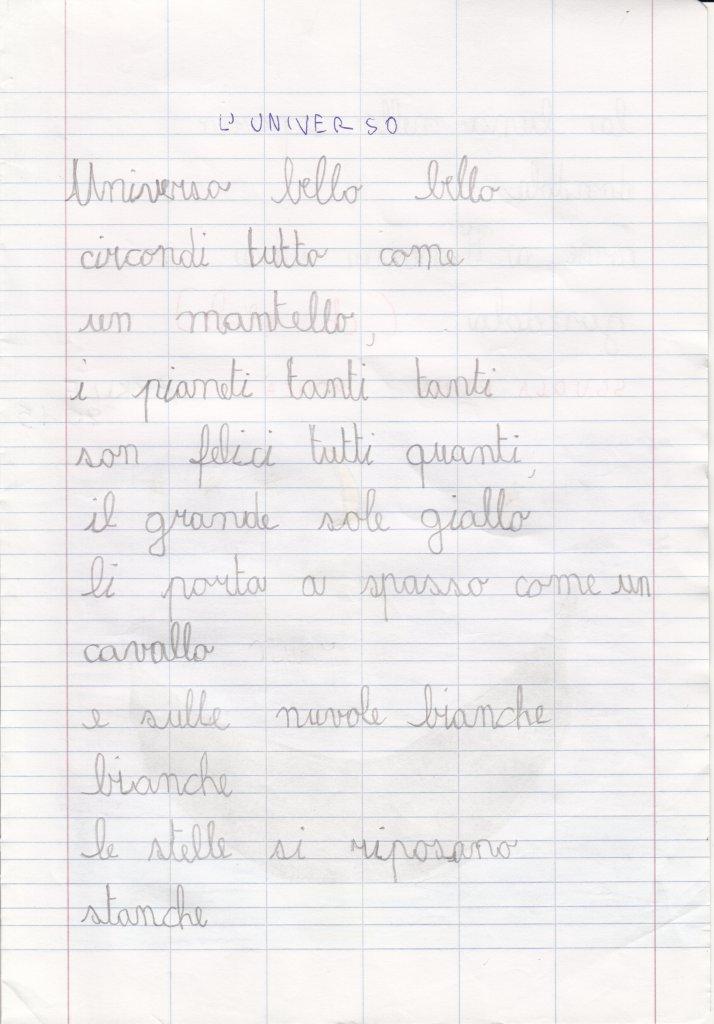 L'UNIVERSO
Universo bello bello
circondi tutto come
un mantello,
i pianeti tanti tanti
son felici tutti quanti,
il grande sole giallo
li porta a spasso come un
cavallo
e sulle nuvole bianche
bianche
le stelle si riposano
stanche